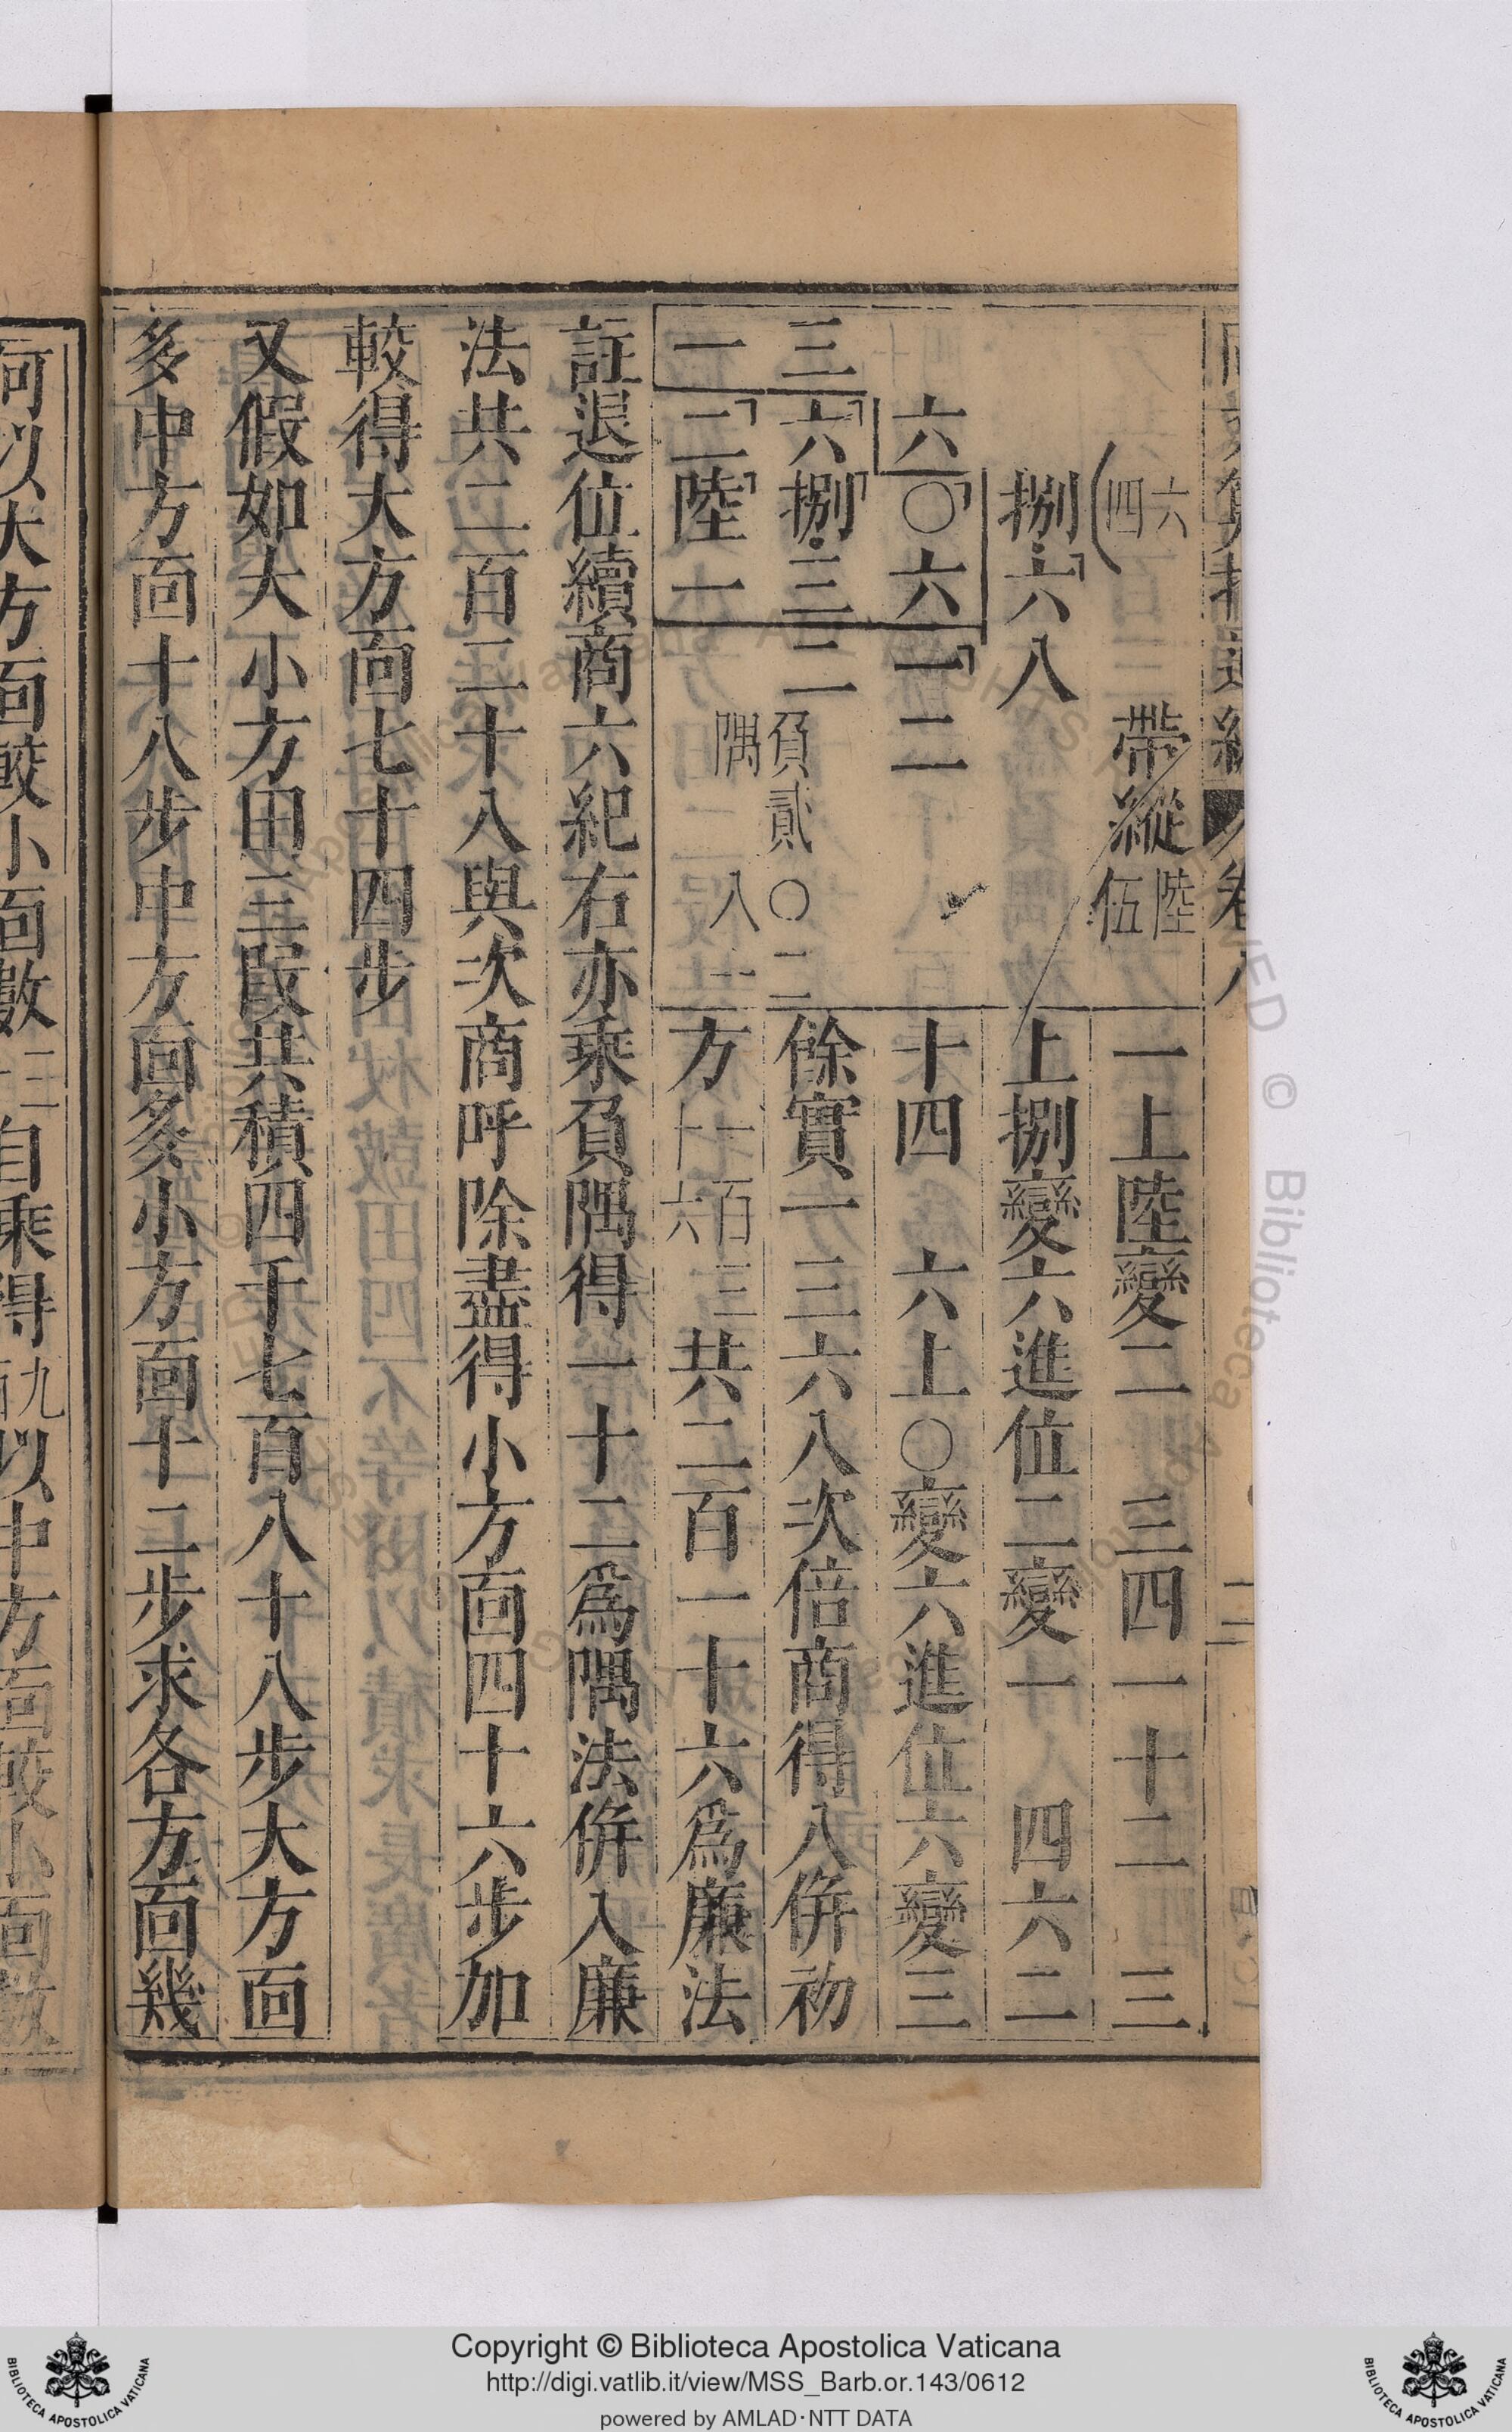 帶縱陸伍
四六
捌六八
六〇六一二
三六捌三二
一二陸一
負隅貳〇二
八一
一上陸變二 三四一十二 三
上捌變六進位二變一 四六二
十四 六上〇變六進位六變三
餘實一三六八次倍商得八併初
方一百七十六三共二百一十六爲廉法
註退位續商六紀右亦乘負隅得一十二爲隅法併入廉
法共二百二十八與次商呼除盡得小方面四十六步加
較得大方面七十四步
又假如大小方田三段共積四千七百八十八步大方面
多中方面十八步中方面多小方面十二步求各方面幾
何以大方面較小面數三十自乘得九百以中方面較小面數
Copyright © Biblioteca Apostolica Vaticana
http://digi.vatlib.it/view/MSS_Barb.or.143/0612
powered by AMLAD·NTT DATA
BIBLIOTECA APOSTOLICA VATICANA
BIBLIOTECA APOSTOLICA VATICANA